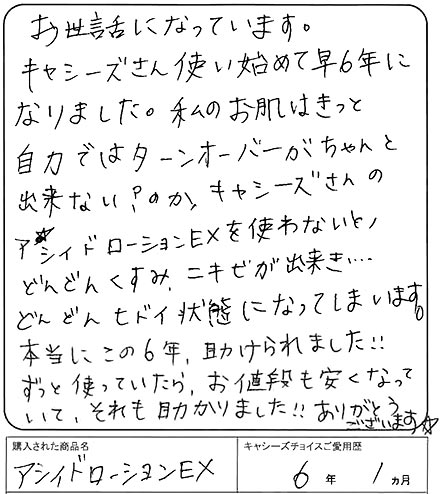 お世話になっています。
キャシーズさん使い始めて早6年に
なりました。私のお肌はきっと
自力ではターンオーバーがちゃんと
出来ない?のか、キャシーズさんの
アシィドローションEXを使わないと、
どんどんくすみ、ニキビが出来き…
どんどんヒドイ状態になってしまいます。
本当にこの6年、助けられました!!
ずっと使っていたら、お値段も安くなって
いて、それも助かりました!!ありがとう
ございます☆
購入された商品名
キャシーズチョイスご愛用歴
アシィドローションEX
6年1ヵ月